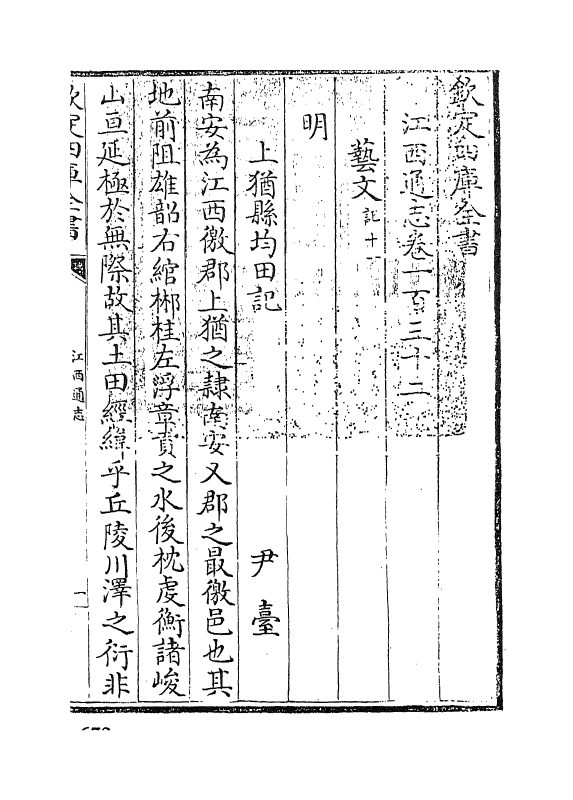 欽定四庫全書
江西通志卷一百三十二
藝文 記十
明
上猶縣均田記 尹臺
南安為江西徼郡上猶之隸南安又郡之最徼邑也其
地前阻雄韶右綰郴桂左浮章貢之水後枕虔衡諸峻
山亘延極於無際故其土田經緯乎丘陵川澤之衍非
欽定四庫全書
江西通志
一